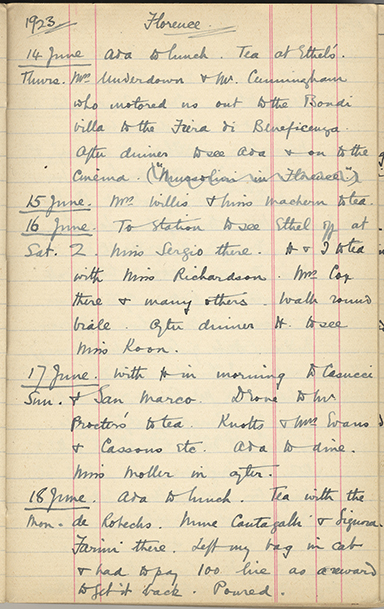 1923 Florence.
14 June Ada to lunch. Tea at Ethel's.
Thurs. Mrs Underdown & Mr. Cunningham
who motored us out to the Bondi
villa to the Fiera di Beneficenza.
After dinner to see Ada & on to the
Cinema. (Mussolini in Florence.)
15 June. Mrs Willis & Miss Machern to tea.
16 June. To Station to see Ethel off at
Sat. 2. Miss Sergio there. H & I to tea
with Miss Richardson. Mrs Cox
there & many others. Walk round
viale. After dinner H. to see
Miss Koon.
17 June. With H in morning to Casucci
Sun. & San Marco. Drove to Mr
Proctor's to tea. Knotts & Mrs Evans
& Cassons etc. Ada to dine.
Miss Moller in after.
18 June. Ada to lunch. Tea with the
Mon. de Robecks. Mme Cantagalli & Signora
Farini there. Left my bag in cab
& had to pay 100 lire as a reward
to get it back. Poured.